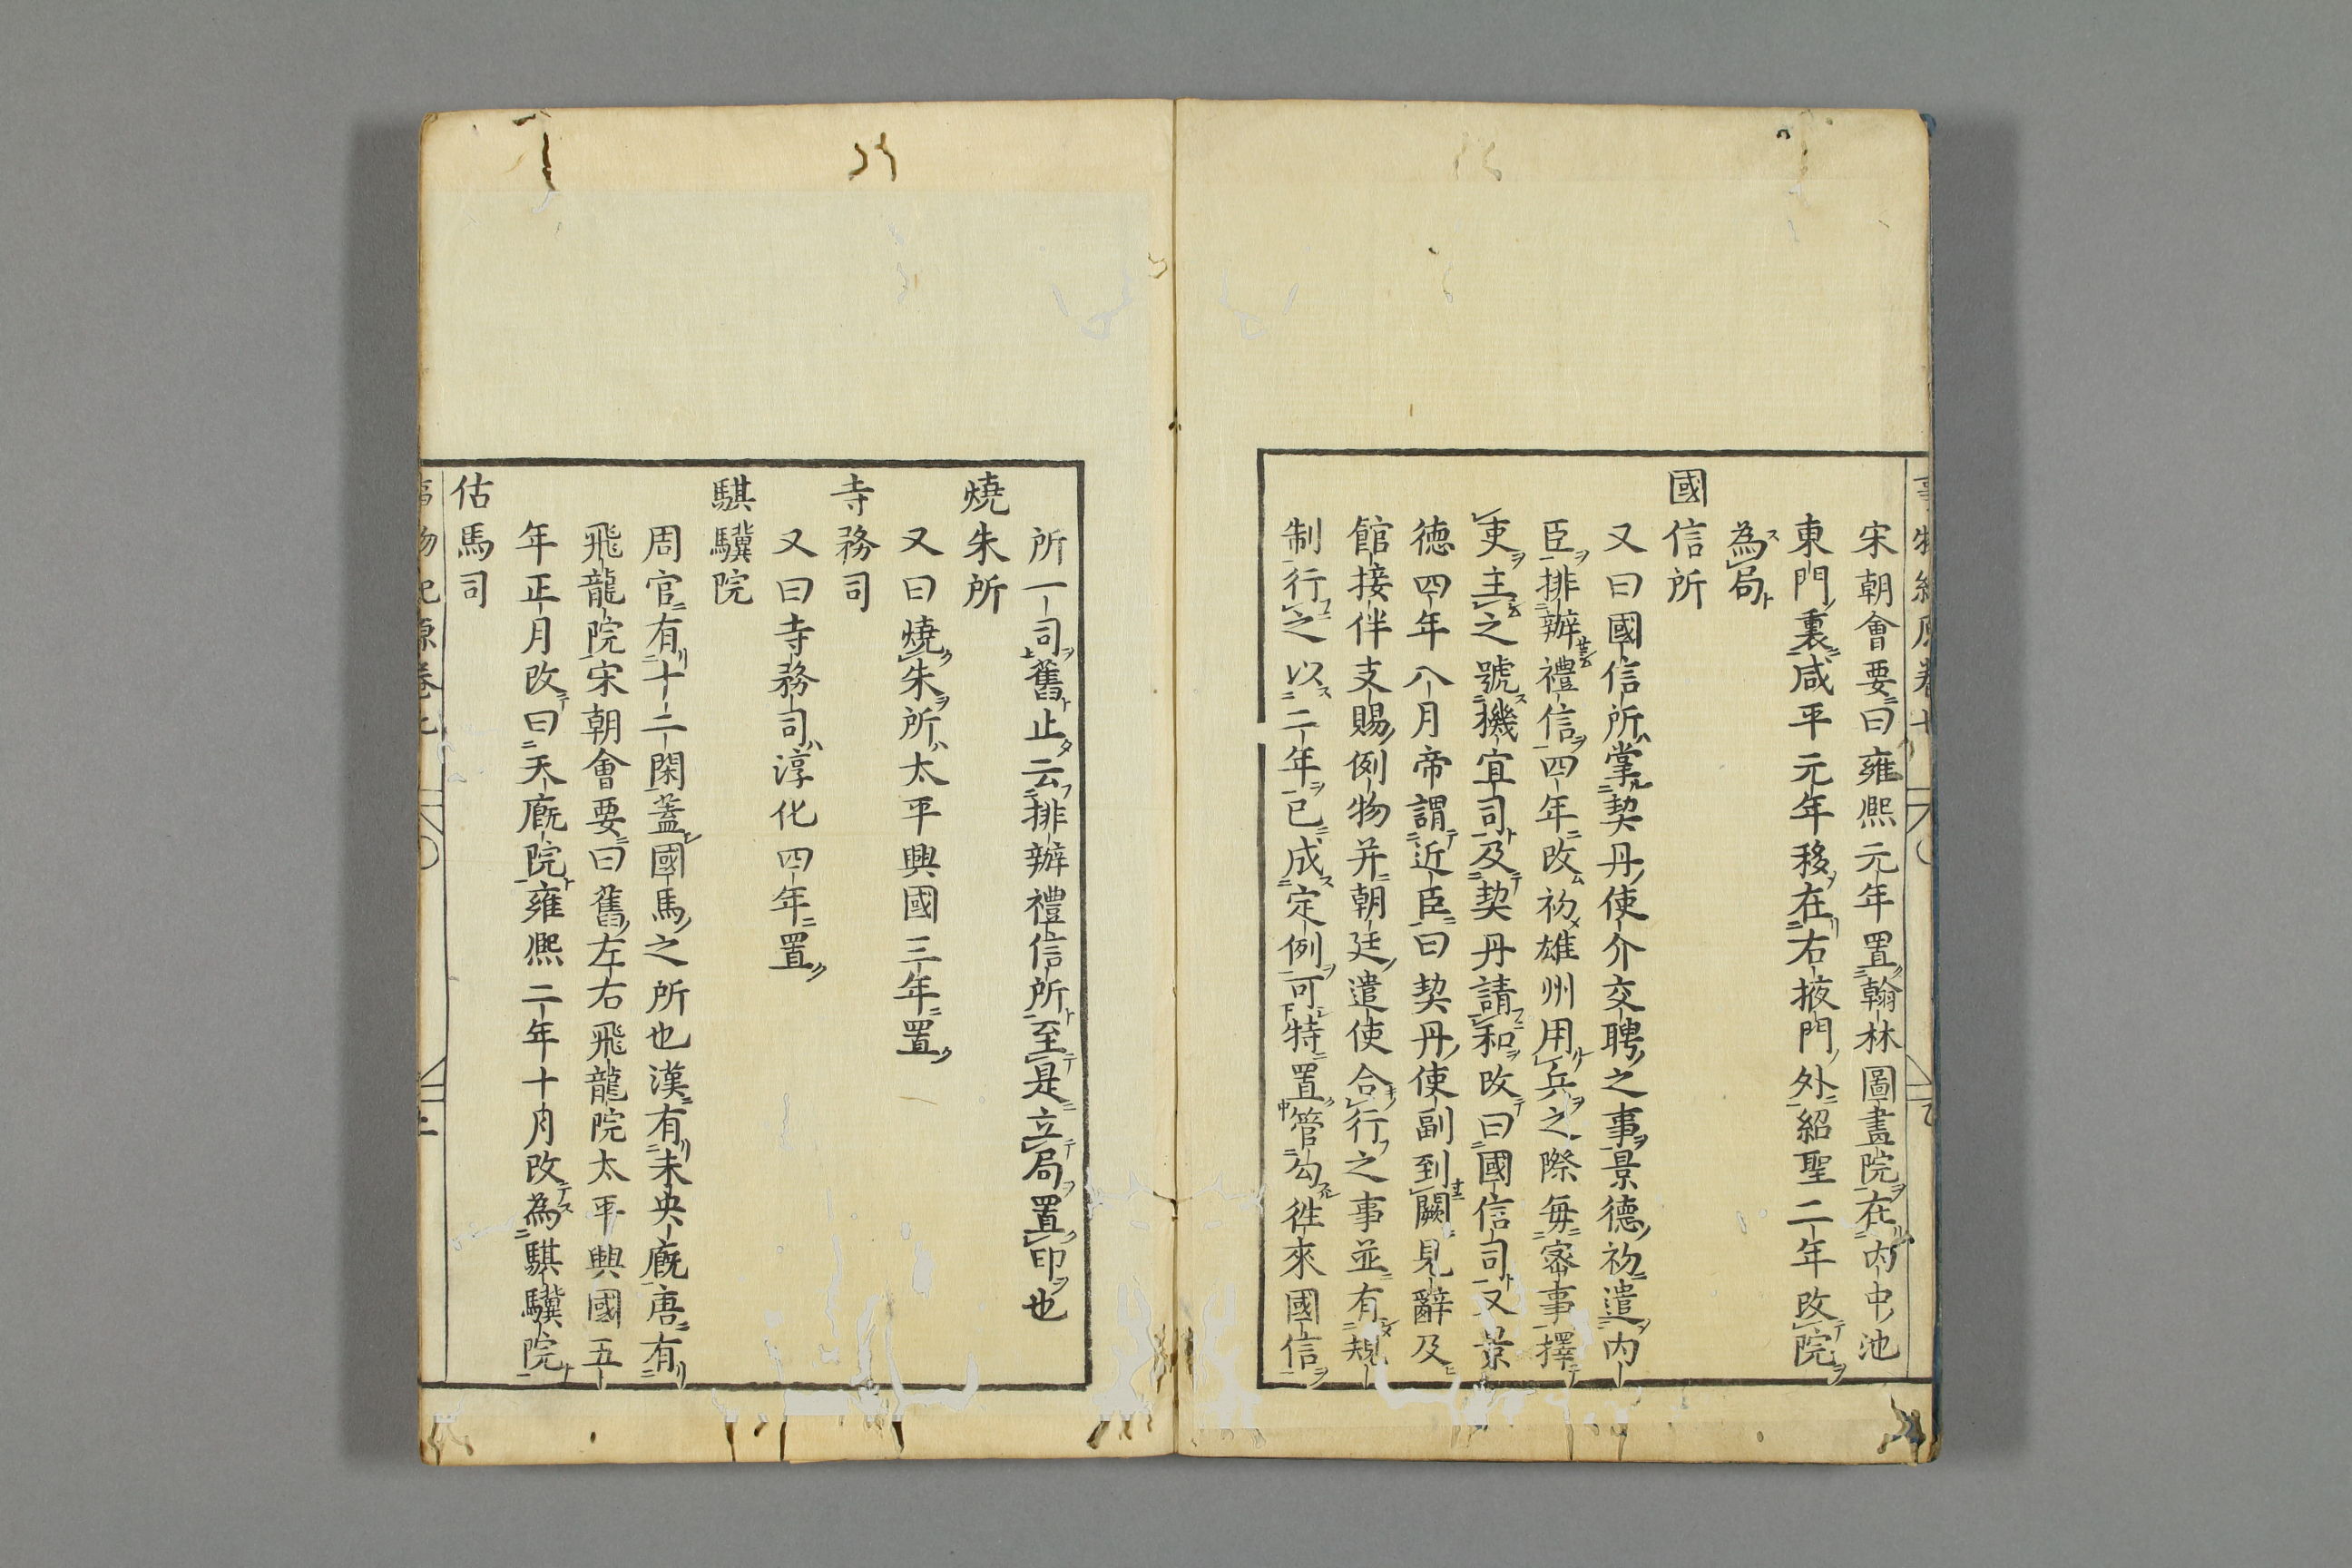 宋朝會要曰雍熈元年置翰林圖畫院在内中池
東門裏咸平元年移在右掖門外紹聖二年改院
為局
國信所
又曰國信所掌契丹使介交聘之事景德初遣内
臣排辦禮信四年改初雄州用兵之際每密事擇
吏主之號機宜司及契丹請和改曰國信司又景
徳四年八月帝謂近臣曰契丹使副到闕見辭及
館接伴支賜例物并朝廷遣使合行之事並有規
制行之以二年已成定例可特置管勾徃來國信
所一司舊止云排辦禮信所至是立局置印也
燒朱所
又曰燒朱所太平興國三年置
寺務司
又曰寺務司淳化四年置
騏驥院
周官有十二閑蓋國馬之所也漢有未央廐唐有
飛龍院宋朝會要曰舊左右飛龍院太平興國五
年正月改曰天廐院雍熈二年十月改為騏驥院
估馬司